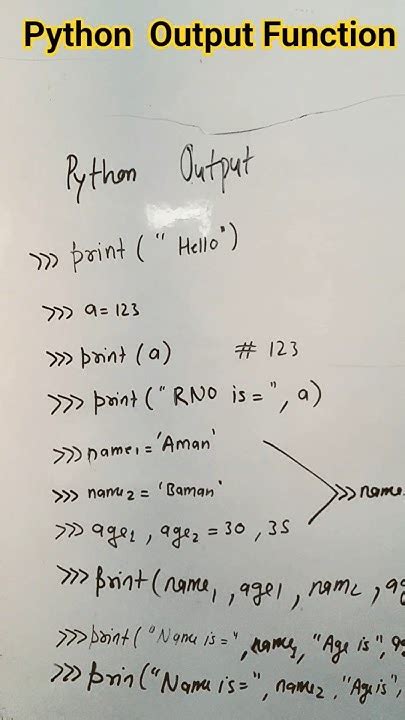 Python Output Function
Python Output
>>> print ( " Hello")
>>> a = 123
>>> print (a) # 123
>>> print ("RNO is = ", a)
>>> name1 = 'Aman'
>>> name2 = 'Baman'
>>> name
>>> age1 , age2 = 30 , 35
>>> print (name1 , age1 , nam2 , ag
>>> print ( "Name is = ", name1, "Age is", ag
>>> prin ("Name is = ", name2, "Age is",